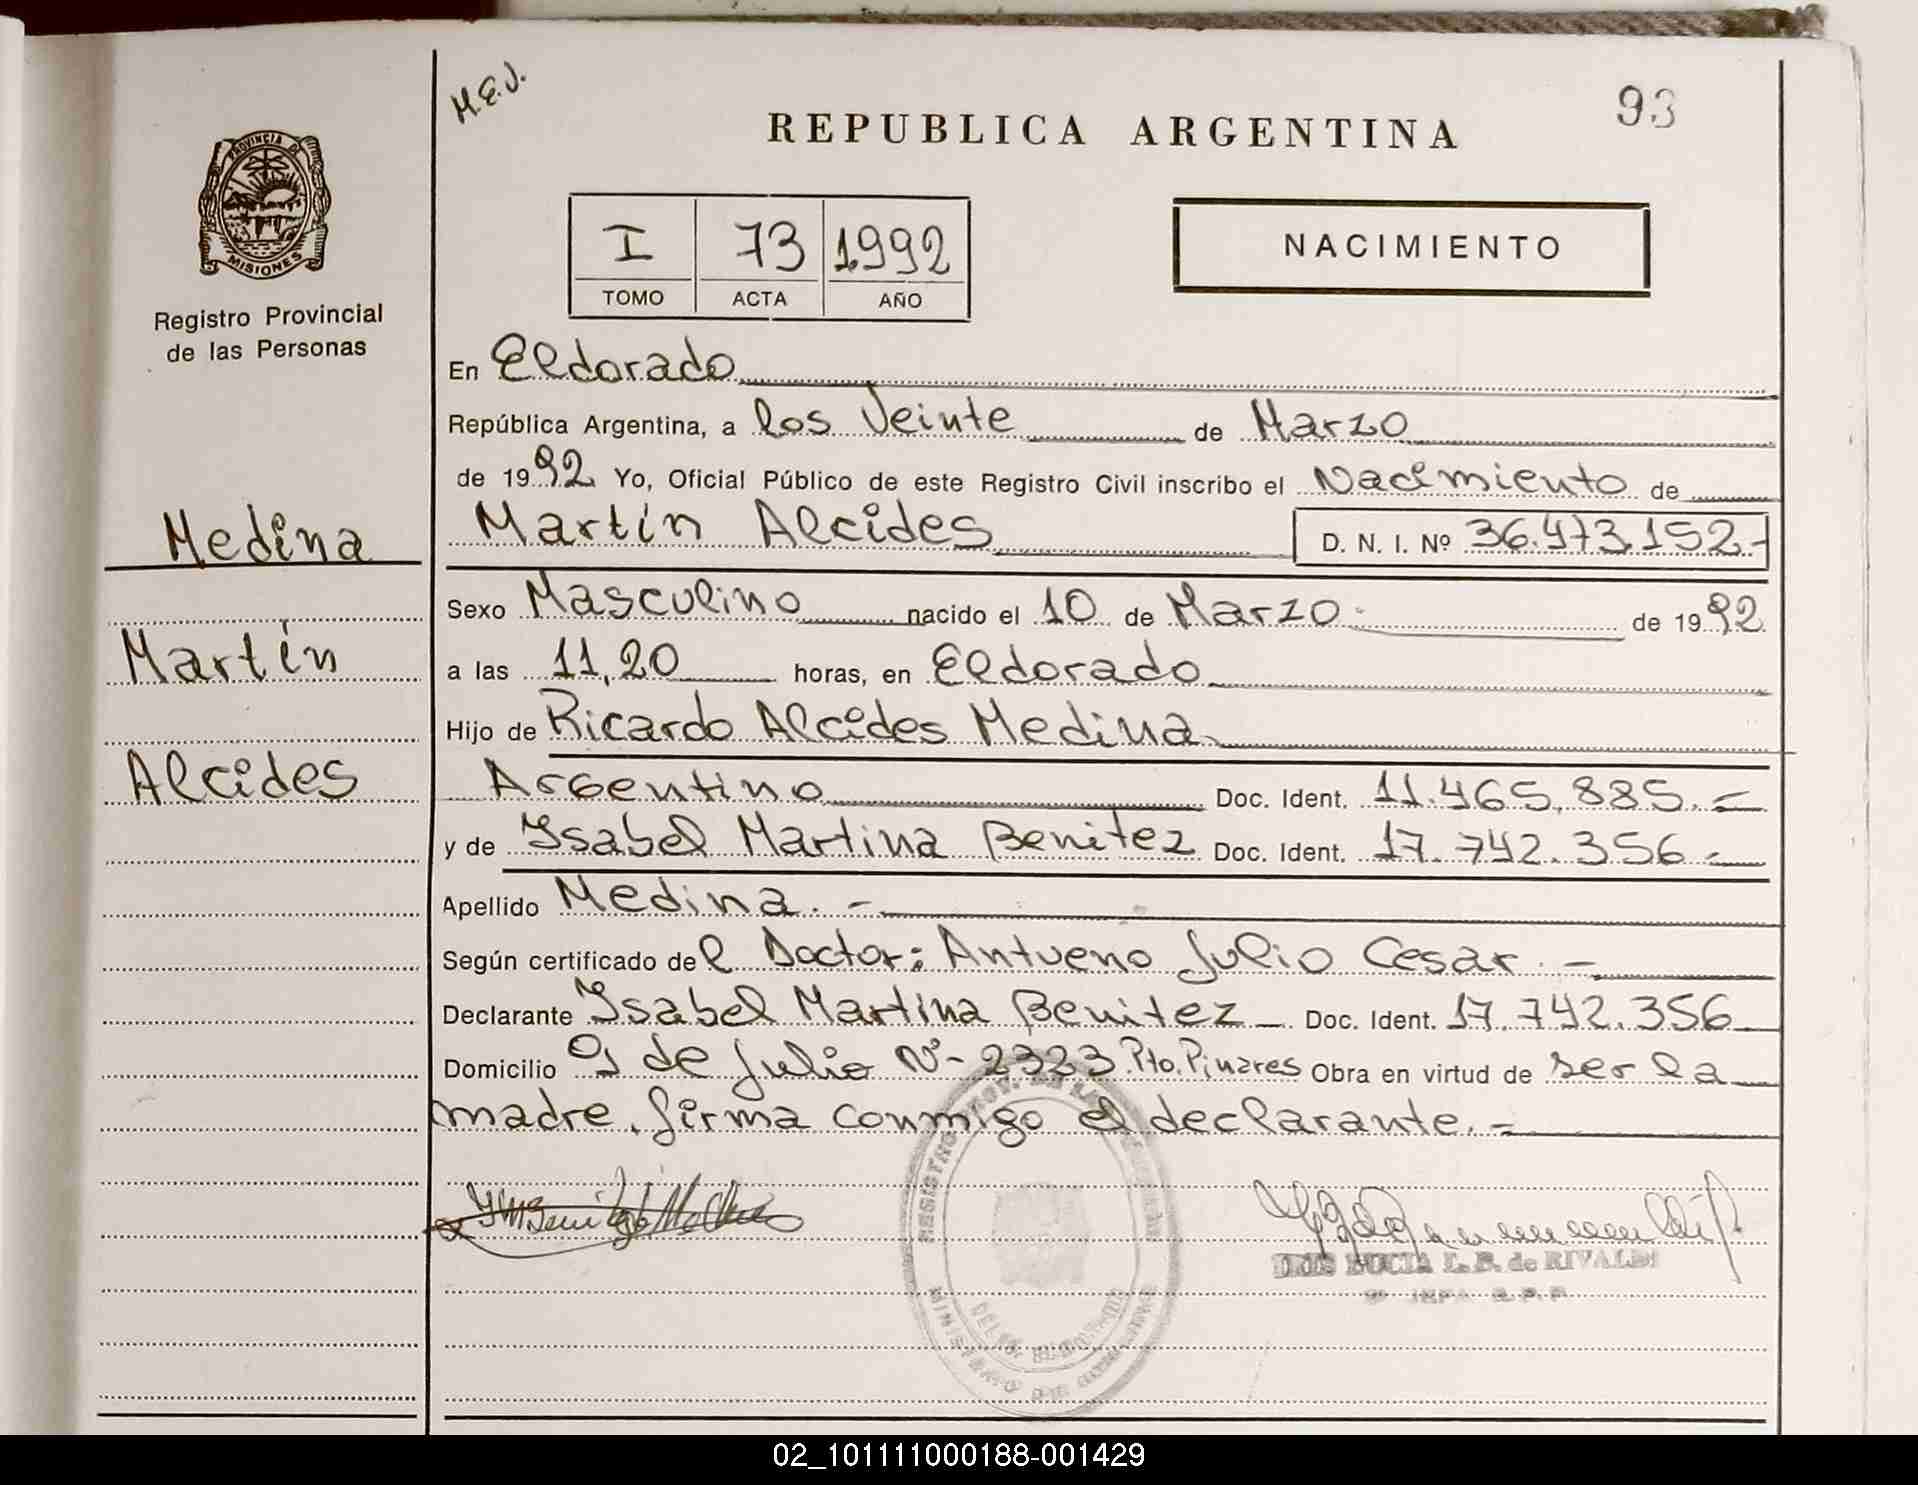 M.E.J.
93
REPUBLICA ARGENTINA
PROVINCIA DE
MISIONES
Registro Provincial
de las Personas
I 73 1992
TOMO ACTA AÑO
NACIMIENTO
En Eldorado
República Argentina, a los Veinte de Marzo
de 1992 Yo, Oficial Público de este Registro Civil inscribo el Nacimiento de
Medina
Martín Alcides D. N. I. Nº 36.473.152.-
Sexo Masculino nacido el 10 de Marzo de 1992
Martín
a las 11,20 horas, en Eldorado
Hijo de Ricardo Alcides Medina
Alcides
Argentino Doc. Ident. 11.465.885.-
y de Ysabel Martina Benitez Doc. Ident. 17.742.356.-
Apellido Medina.-
Según certificado del Doctor: Antueno Julio Cesar.-
Declarante Ysabel Martina Benitez Doc. Ident. 17.742.356
Domicilio 9 de Julio Nº- 2323 Pto. Pinares Obra en virtud de ser la
madre. firma conmigo el declarante.-
L. B. de RIVALDI
02_101111000188-001429